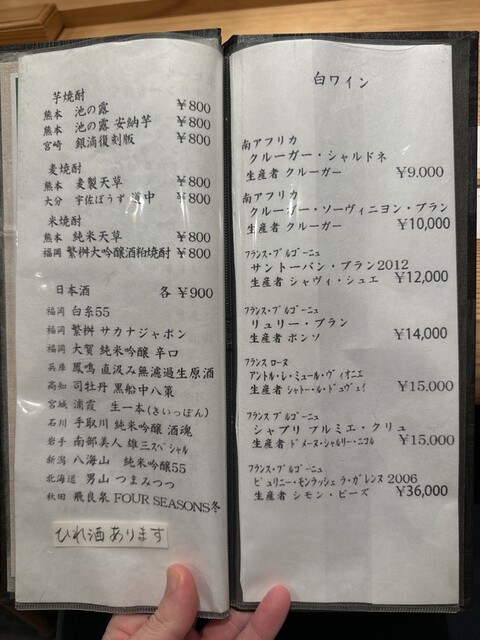 芋焼酎
熊本 池の露 ¥800
熊本 池の露 安納芋 ¥800
宮崎 銀滴復刻版 ¥800
麦焼酎
熊本 麦製天草 ¥800
大分 宇佐ぼうず 道中 ¥800
米焼酎
熊本 純米天草 ¥800
福岡 繁桝大吟醸酒粕焼酎 ¥800
日本酒 各 ¥900
福岡 白糸55
福岡 繁桝 サカナジャポン
福岡 大賀 純米吟醸 辛口
兵庫 鳳鳴 直汲み無濾過生原酒
高知 司牡丹 黒船中八策
宮城 浦霞 生一本(きいっぽん)
石川 手取川 純米吟醸 酒魂
岩手 南部美人 雄三スペシャル
新潟 八海山 純米吟醸55
北海道 男山 つまみつつ
秋田 飛良泉 FOUR SEASONS冬
ひれ酒あります
白ワイン
南アフリカ
クルーガー・シャルドネ
生産者 クルーガー ¥9,000
南アフリカ
クルーガー・ソーヴィニヨン・ブラン
生産者 クルーガー ¥10,000
フランス・ブルゴーニュ
サントーバン・ブラン2012
生産者 シャヴィ・シュエ ¥12,000
フランス・ブルゴーニュ
リュリー・ブラン
生産者 ポンソ ¥14,000
フランス ローヌ
アントル・レ・ミュール・ヴィオニエ
生産者 シャトー・ル・ドュヴェイ ¥15.000
フランス ブルゴーニュ
シャブリ プルミエ・クリュ
生産者 ドメーヌ・シャルリー・ニコル ¥15.000
フランス・ブルゴーニュ
ピュリニー・モンラッシェ ラ・ガレンヌ 2006
生産者 シモン・ビーズ ¥36,000